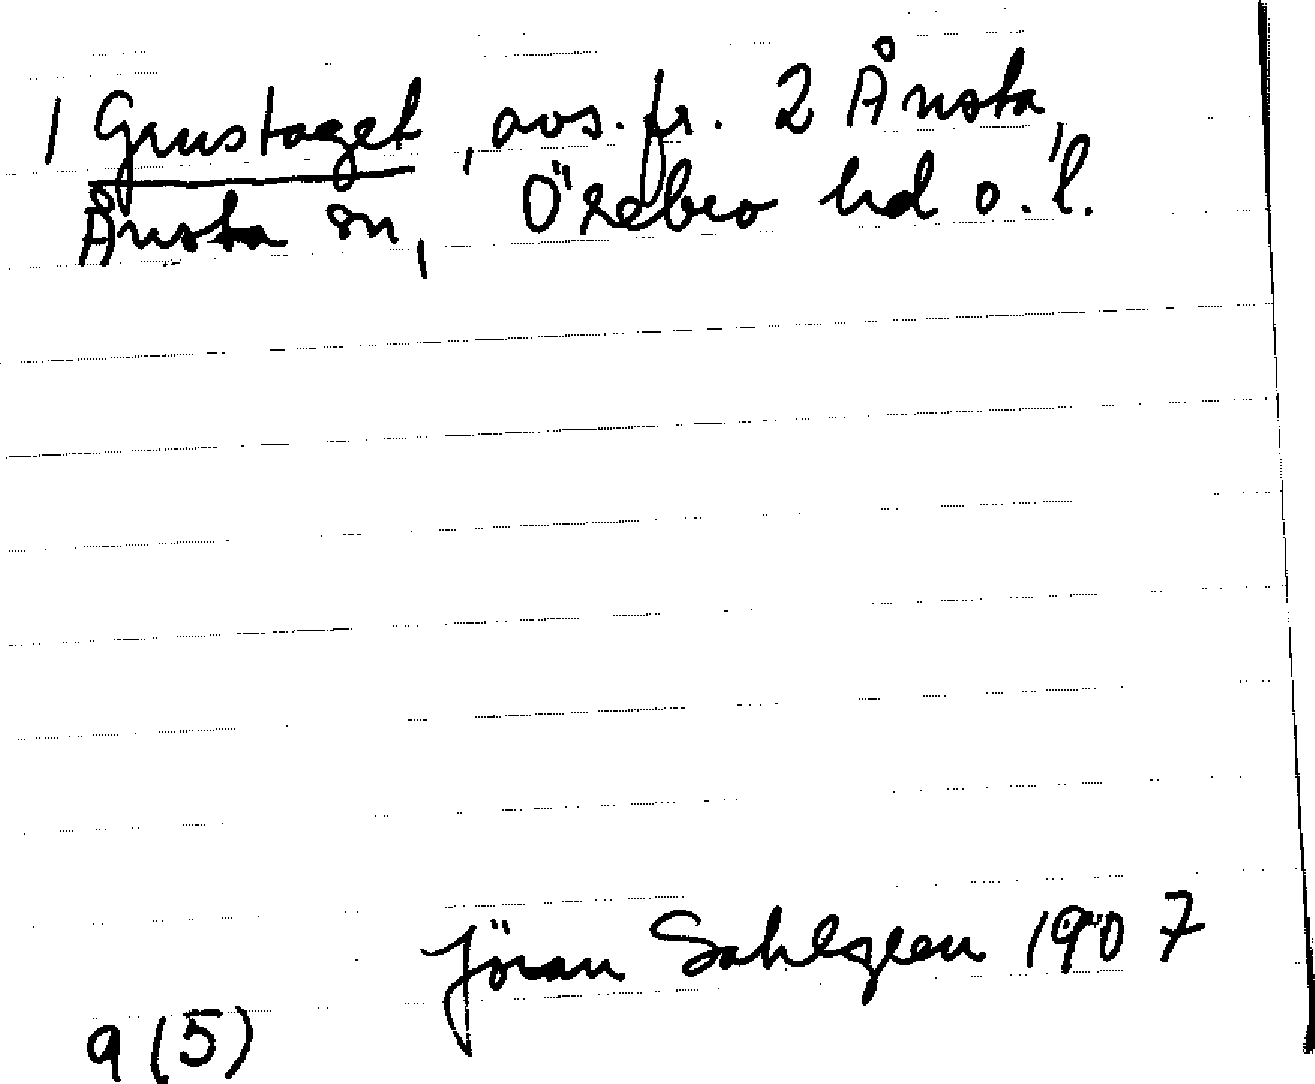 1 Grustaget, avs. fr. 2 Ånsta,
Ånsta sn, Örebro hd o. l.
Jöran Sahlgren 1907
9 (5)